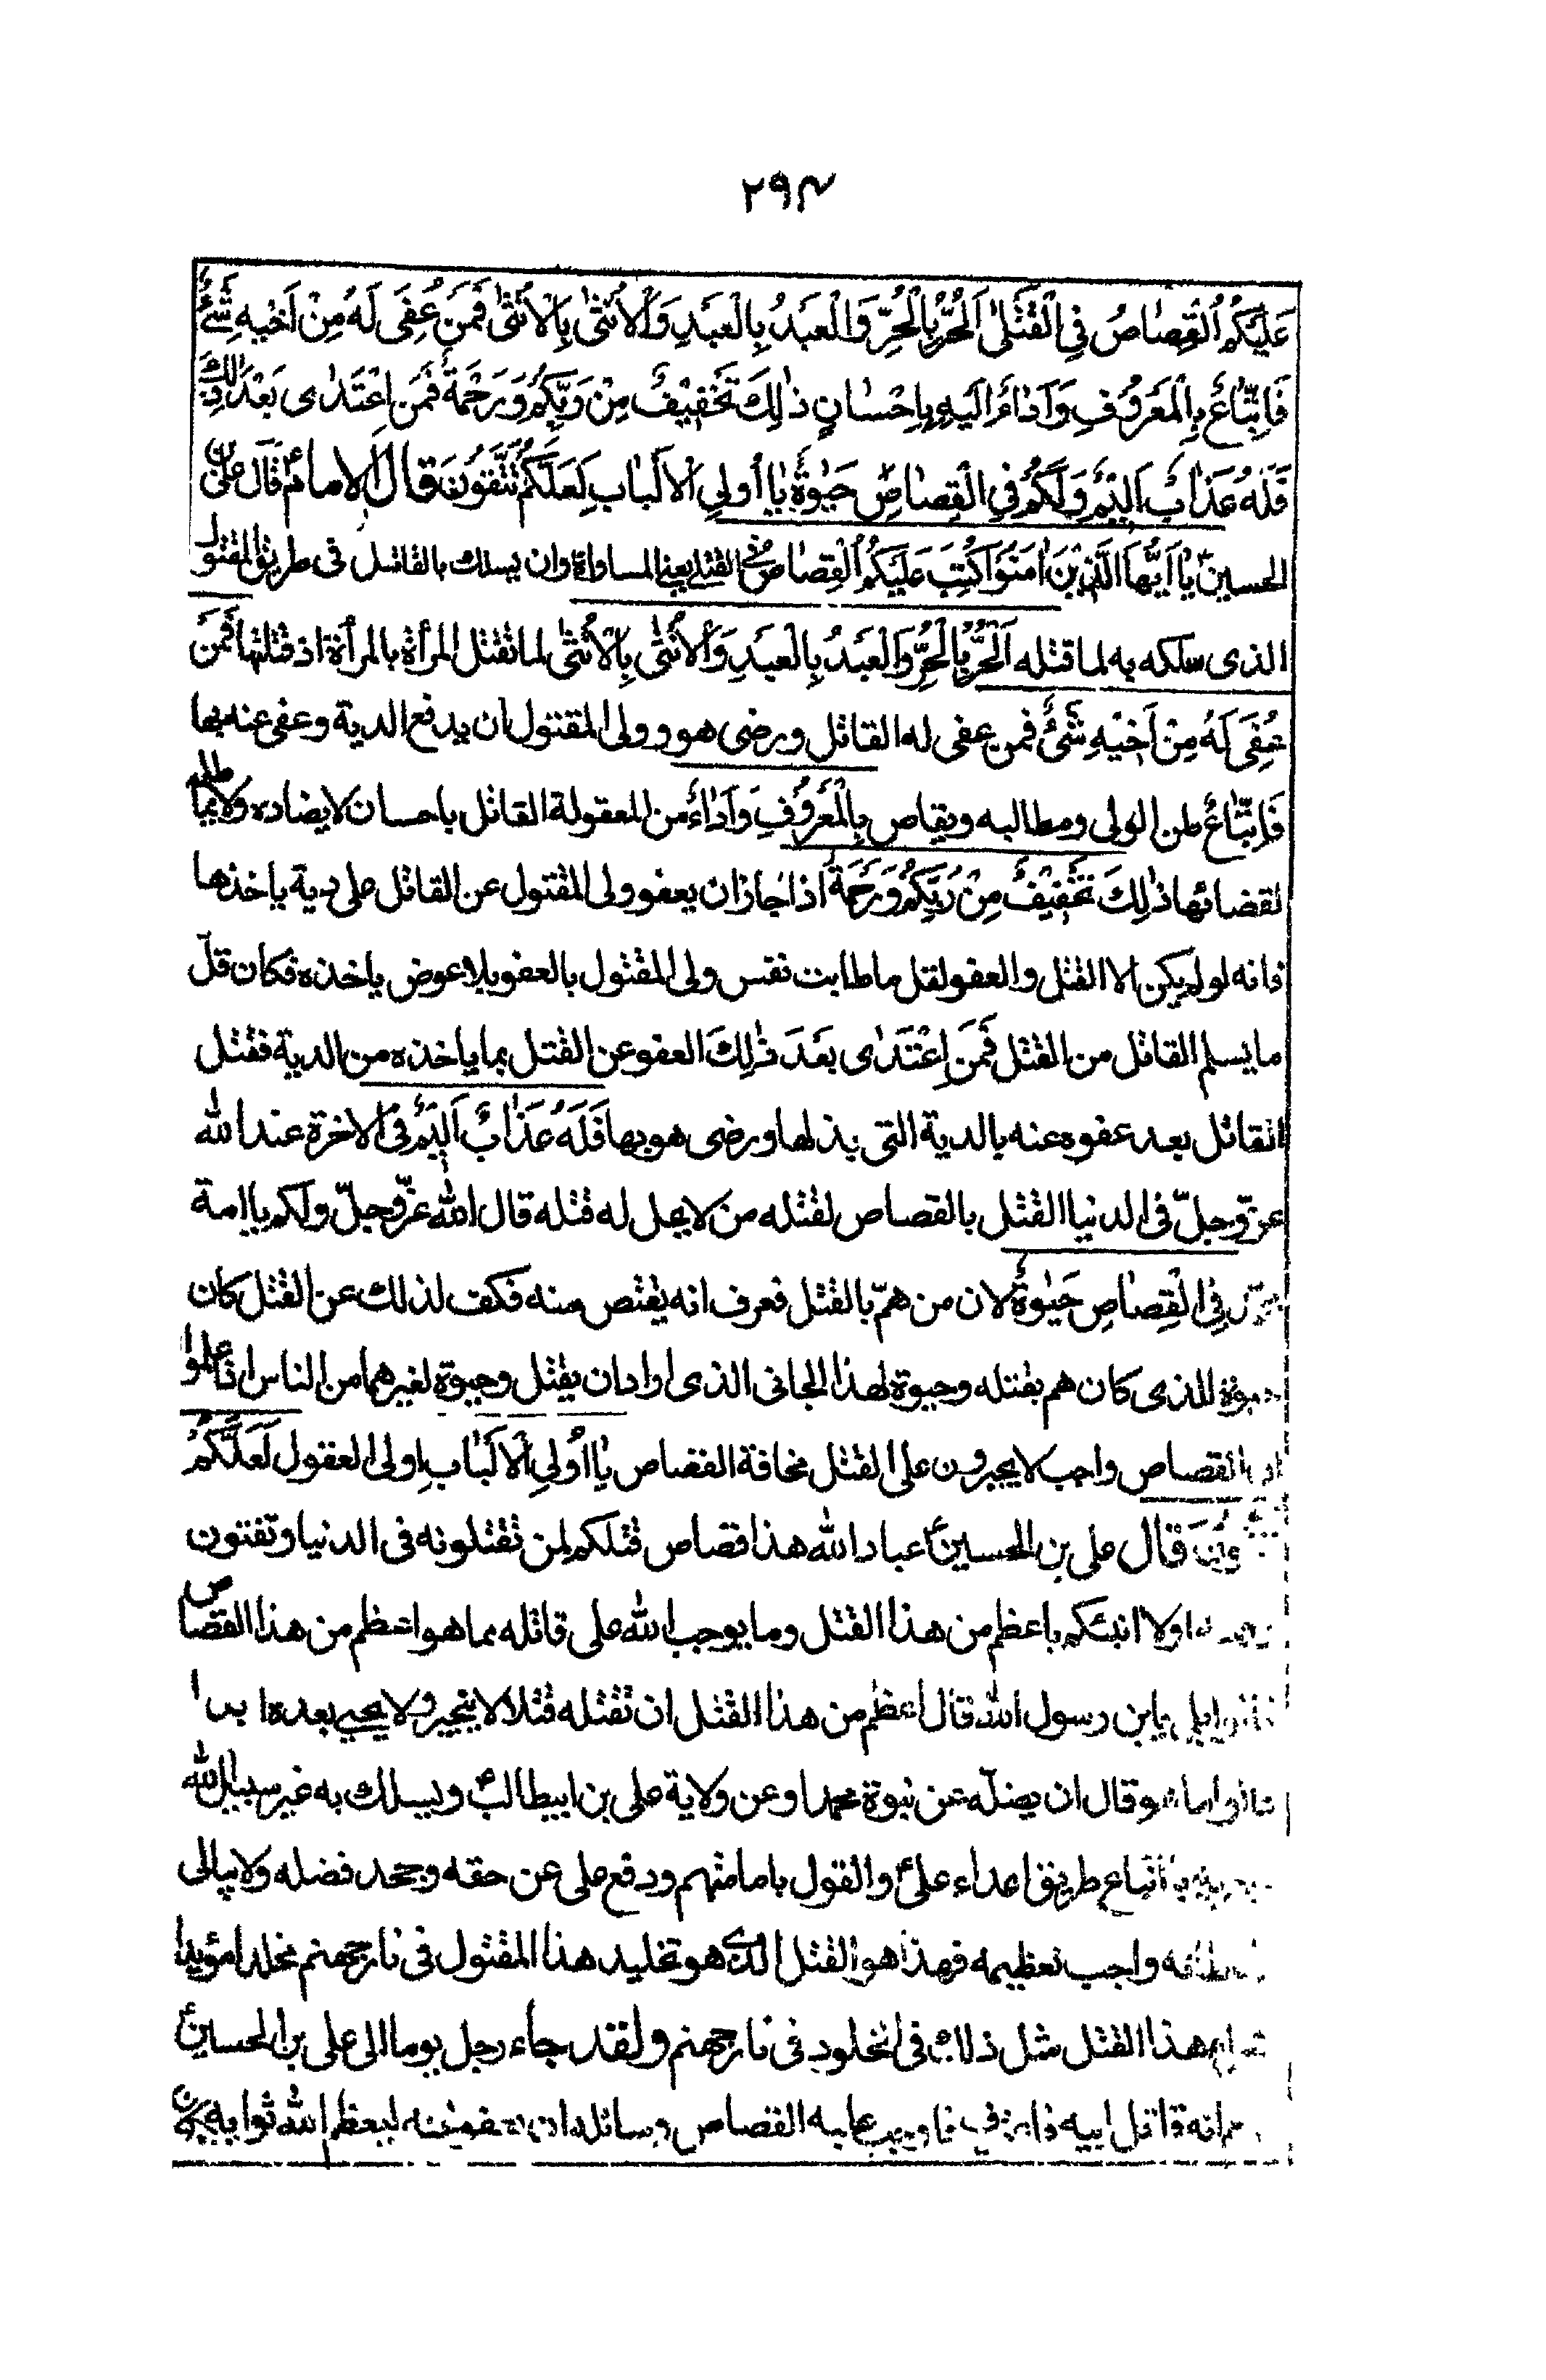 ٢٩٣
عَلَيْكُمُ الْقِصٰاصُ فِي الْقَتْلىٰ اَلْحُرُّ بِالْحُرِّ وَالْعَبْدُ بِالْعَبْدِ وَالْاُنْثىٰ بِالْاُنْثىٰ فَمَنْ عُفِيَ لَهُ مِنْ اَخِيْهِ شَيْءٌ
فَاتِّبٰاعٌ بِالْمَعْرُوْفِ وَاَدٰاءٌ اِلَيْهِ بِاِحْسٰانٍ ذٰلِكَ تَخْفِيْفٌ مِنْ رَبِّكُمْ وَرَحْمَةٌ فَمَنِ اعْتَدٰى بَعْدَ ذٰلِكَ
فَلَهُ عَذٰابٌ اَلِيْمٌ وَلَكُمْ فِي الْقِصٰاصِ حَيٰوةٌ يٰا اُولِي الْاَلْبٰابِ لَعَلَّكُمْ تَتَّقُوْنَ قال الامامؑ قال علي بن
الحسينؑ يٰا اَيُّهَا الَّذِيْنَ اٰمَنُوْا كُتِبَ عَلَيْكُمُ الْقِصٰاصُ فِي القتلى يعني المساواة وان يسلك بالقاتل في طريق المقتول
الذى سلكه به لما قتله اَلْحُرُّ بِالْحُرِّ وَالْعَبْدُ بِالْعَبْدِ وَالْاُنْثىٰ بِالْاُنْثىٰ لما تقتل المرأة بالمرأة اذ قتلتها فَمَنْ
عُفِيَ لَهُ مِنْ اَخِيْهِ شَيْءٌ فمن عفى له القاتل ورضى هو وولى المقتول ان يدفع الدية وعفى عنه بها
فَاتِّبٰاعٌ من الولى ومطالبه وتقاص بِالْمَعْرُوْفِ وَاَدٰاءٌ من المعقولة القاتل باحسان لا يضاده ولا يماطله
لقضائها ذٰلِكَ تَخْفِيْفٌ مِنْ رَبِّكُمْ وَرَحْمَةٌ اذا جاز ان يعفو ولى المقتول عن القاتل على دية ياخذها
فانه لو لم يكن الا القتل والعفو لقل ما طابت نفس ولى المقتول بالعفو بلا عوض ياخذه فكان قلّ
ما يسلم القاتل من القتل فَمَنِ اعْتَدٰى بَعْدَ ذٰلِكَ العفو عن القتل بما ياخذه من الدية فقتل
القاتل بعد عفوه عنه بالدية التى بذلها ورضى هو بها فَلَهُ عَذٰابٌ اَلِيْمٌ فى الاخرة عند الله
عزّ وجلّ فى الدنيا القتل بالقصاص لقتله من لا يحل له قتله قال الله عزّ وجلّ ولكم يا امة
فِي الْقِصٰاصِ حَيٰوةٌ لان من همّ بالقتل فعرف انه يقتص منه فكف لذلك عن القتل كان
حيوة للذى كان هم بقتله وحيوة لهذا الجانى الذى اراد ان يقتل وحيوة لغيرهما من الناس اذ علموا
ان القصاص واجب لا يجبرون على القتل مخافة القصاص يٰا اُولِي الْاَلْبٰابِ اولى العقول لَعَلَّكُمْ
قال على بن الحسينؑ عباد الله هذا قصاص قتلكم لمن تقتلونه فى الدنيا وتفنون
اولا انبئكم باعظم من هذا القتل وما يوجب الله على قاتله مما هو اعظم من هذا القصاص
يابن رسول الله قال اعظم من هذا القتل ان تقتله قتلا لا ينجبر ولا يحيى بعده ابدا
قالوا ما هو قال ان يضلّه عن نبوة محمد وعن ولاية على بن ابيطالبؑ ويسلك به غير سبيل الله
باتباع طريق اعداء علىؑ والقول بامامتهم ودفع على عن حقه وجحد فضله ولا يبالى
واجب تعظيمه فهذا هو القتل الذى هو تخليد هذا المقتول فى نار جهنم مخلدا مؤبدا
هذا القتل مثل ذلك فى الخلود فى نار جهنم ولقد جاء رجل يوما الى على بن الحسينؑ
انه قاتل ابيه فاعترف فاوجب عليه القصاص وساله ان يعفو عنه ليعظم الله ثوابه